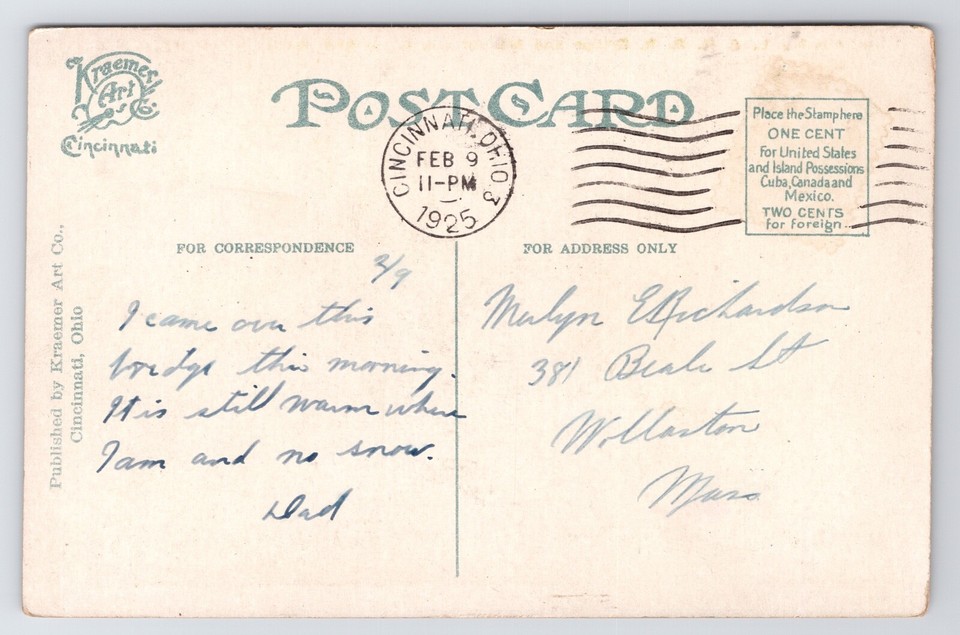 Kraemer
Art
Co.
Cincinnati
POST CARD
CINCINNATI, OHIO 3
FEB 9
11-PM
1925
Place the Stamp here
ONE CENT
For United States
and Island Possessions
Cuba, Canada and
Mexico.
TWO CENTS
for foreign
FOR CORRESPONDENCE
FOR ADDRESS ONLY
Published by Kraemer Art Co.,
Cincinnati, Ohio
2/9
I came over this
bridge this morning.
It is still warm where
I am and no snow.
Dad
Merlyn E Richardson
381 Beale St
Wollaston
Mass